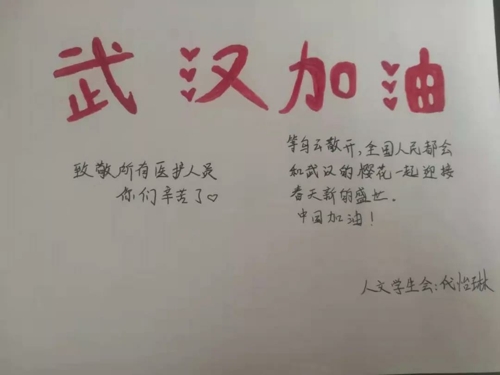 武汉加油
致敬所有医护人员
你们辛苦了♡
等乌云散开,全国人民都会
和武汉的樱花一起迎接
春天新的盛世.
中国加油!
人文学生会:代怡琳